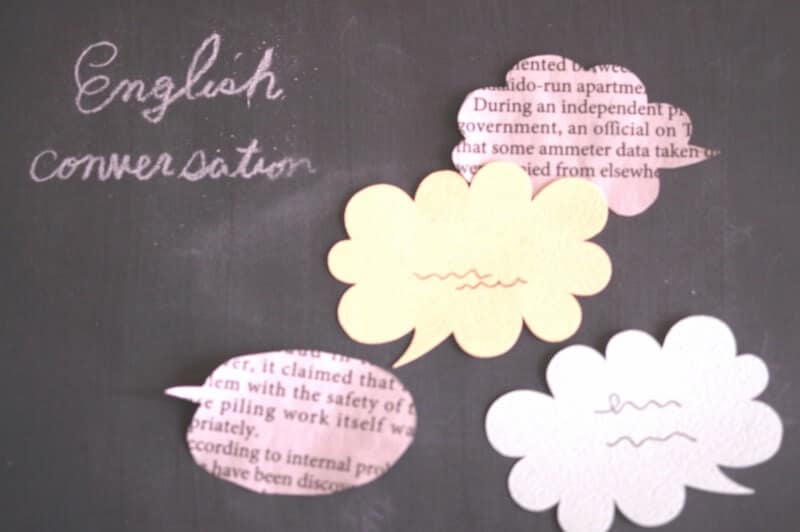 English
conversation
mented between
aido-run apartme
During an independent pr
government, an official on T
that some ammeter data taken
were copied from elsewhe
er, it claimed that
lem with the safety of
e piling work itself wa
priately.
ccording to internal pro
have been discov